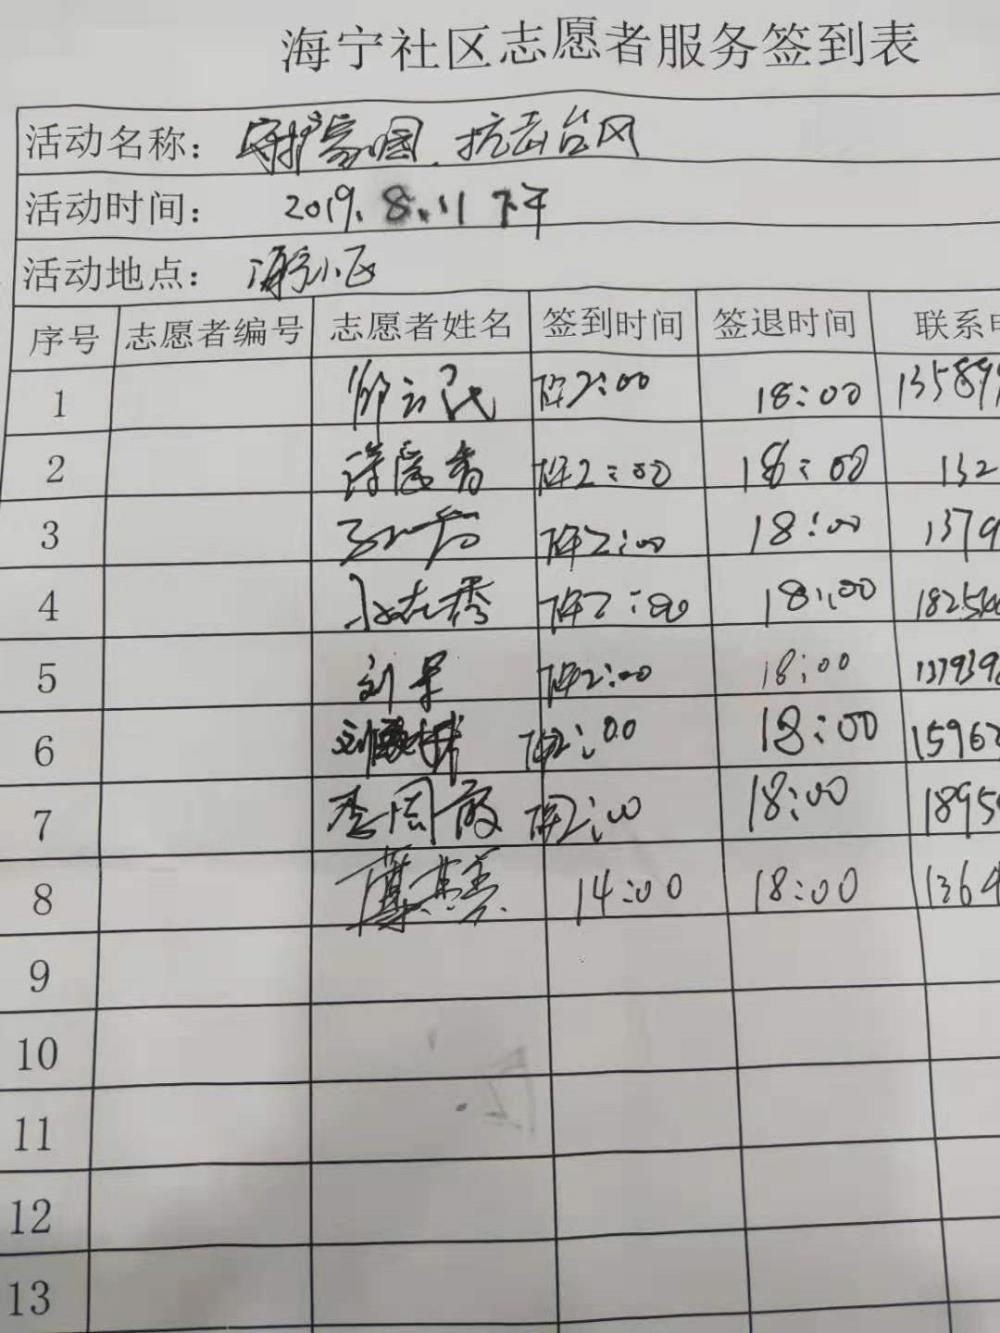 海宁社区志愿者服务签到表
活动名称： 守护家园、抗击台风
活动时间： 2019.8.11 下午
活动地点： 海宁小区
序号 志愿者编号 志愿者姓名 签到时间 签退时间 联系电
1 下午2:00 18:00 13589
2 下午2:00 18:00 132
3 下午2:00 18:00 1379
4 下午2:00 18:00 18254
5 刘 下午2:00 18:00 137939
6 刘 下午2:00 18:00 15962
7 李周霞 下午2:00 18:00 1895
8 14:00 18:00 1364
9
10
11
12
13